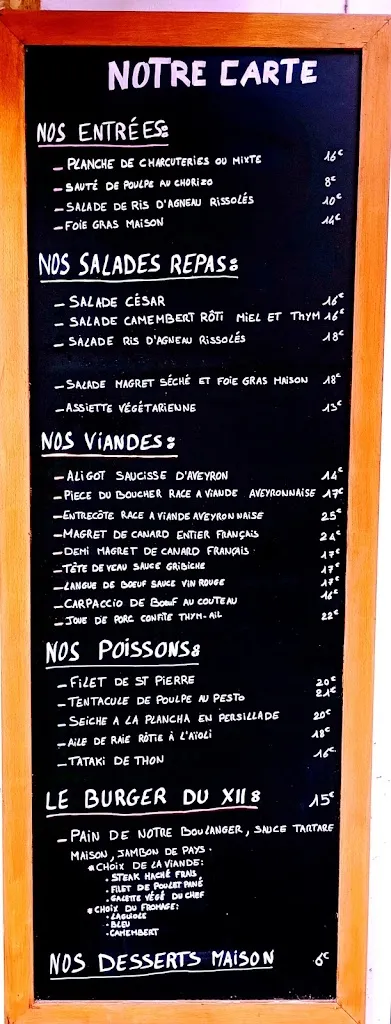 NOTRE CARTE
NOS ENTRÉES:
- PLANCHE DE CHARCUTERIES OU MIXTE 16€
- SAUTÉ DE POULPE AU CHORIZO 8€
- SALADE DE RIS D'AGNEAU RISSOLÉS 10€
- FOIE GRAS MAISON 14€
NOS SALADES REPAS:
- SALADE CÉSAR 16€
- SALADE CAMEMBERT RÔTI MIEL ET THYM 16€
- SALADE RIS D'AGNEAU RISSOLÉS 18€
- SALADE MAGRET SÉCHÉ ET FOIE GRAS MAISON 18€
- ASSIETTE VÉGÉTARIENNE 13€
NOS VIANDES:
- ALIGOT SAUCISSE D'AVEYRON 14€
- PIECE DU BOUCHER RACE A VIANDE AVEYRONNAISE 17€
- ENTRECÔTE RACE A VIANDE AVEYRONNAISE 25€
- MAGRET DE CANARD ENTIER FRANÇAIS 24€
- DEMI MAGRET DE CANARD FRANÇAIS 17€
- TÊTE DE VEAU SAUCE GRIBICHE 17€
- LANGUE DE BOEUF SAUCE VIN ROUGE 17€
- CARPACCIO DE BOEUF AU COUTEAU 16€
- JOUE DE PORC CONFITE THYM-AIL 22€
NOS POISSONS:
- FILET DE ST PIERRE 20€
- TENTACULE DE POULPE AU PESTO 21€
- SEICHE A LA PLANCHA EN PERSILLADE 20€
- AILE DE RAIE RÔTIE À L'AÏOLI 18€
- TATAKI DE THON 16€
LE BURGER DU XII: 15€
- PAIN DE NOTRE BOULANGER, SAUCE TARTARE
MAISON, JAMBON DE PAYS.
* CHOIX DE LA VIANDE:
. STEAK HACHÉ FRAIS
. FILET DE POULET PANÉ
. GALETTE VÉGÉ DU CHEF
* CHOIX DU FROMAGE:
. LAGUIOLE
. BLEU
. CAMEMBERT
NOS DESSERTS MAISON 6€